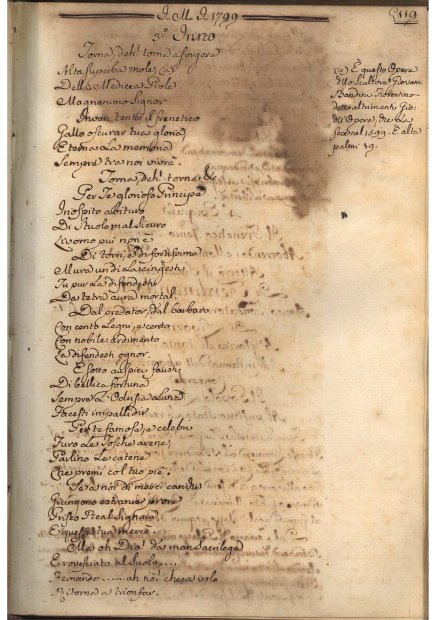 I. M. I. 1799
119
3.° Inno
Torna, deh! torna a sorgere
Alta superba mole, (a)
Della Medicea Prole
Magnanimo Signor
Invan tentò il frenetico
Gallo oscurar tua gloria,
Eterna La memoria
Sempre tra noi vivrà.
Torna, deh! torna &c
Per Te glorioso Principe
Inospito abituro
Di Stuolo mal sicuro
Livorno più non è
Di torri, e di fortissime
Mura un dì La cingesti
Tu pur La difendesti
Da tetra aura mortal.
Dal predator, dal barbaro
Con cento Legni, e cento
Con nobile ardimento
La difendesti ognor.
E sotto auspici fausti
Di bellica fortuna
Sempre L'Odrisia Luna
Facesti impallidir
Per te famose, e celebri
Furo Le Tosche arene,
Parlino Le catene
Che premi col tuo piè.
Se a noi di merci cariche
Giungono estranie prore
Prisco Real Signore
E questa tua mercè.
Ella oh Dio! da man sacrilega
E rovesciato al Suolo....
Fernando..... ah no! che a volo
Ritorna a trionfar.
(a) È questo Opera
dello Scultore Giovanni
Bandini Fiorentino
detto altrimenti Gio:
dell'Opera, che La
fece nel 1599. È alta
palmi 19.